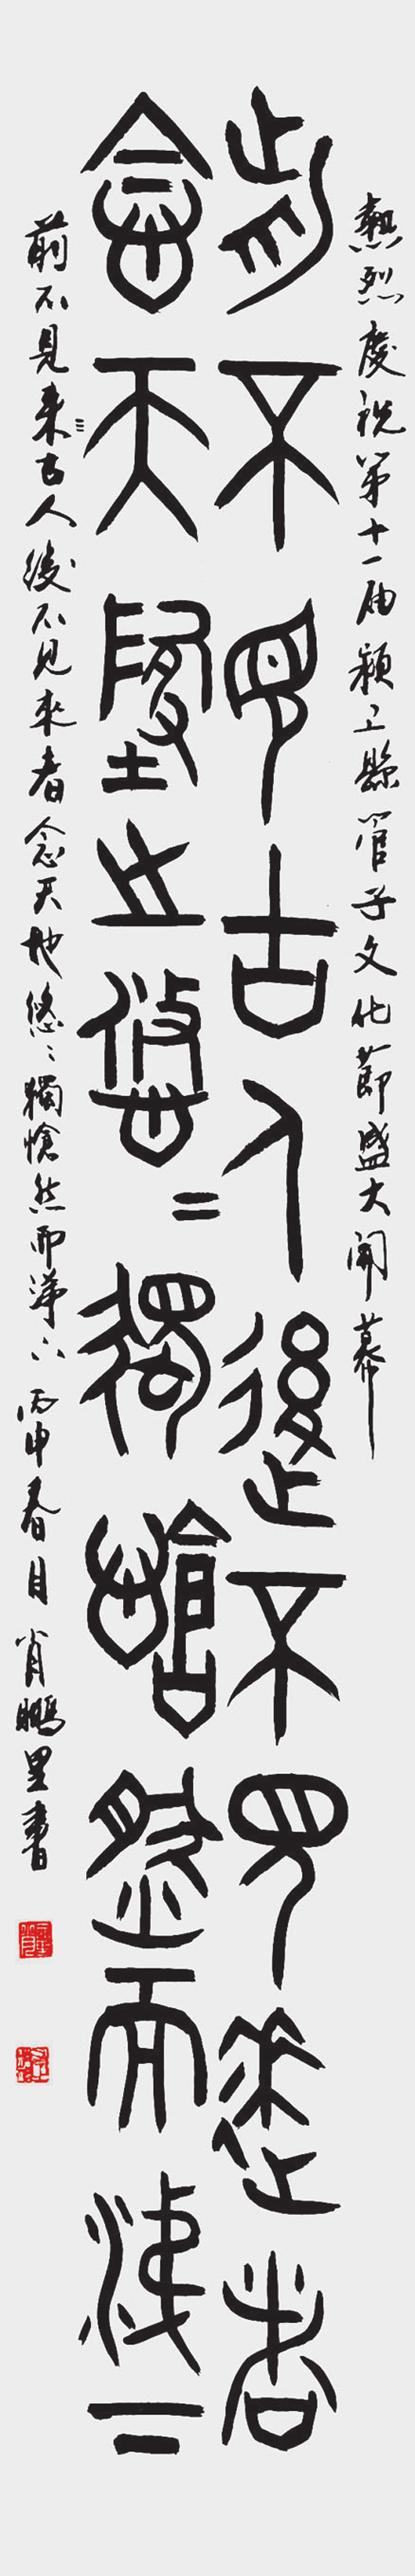 熱烈慶祝第十一届潁上縣管子文化節盛大開幕
前不見古人後不見來者
念天地之悠〻獨愴然而涕下
前不見来古人後不見來者念天地悠〻獨愴然而涕下 丙申春月肖鵬里書